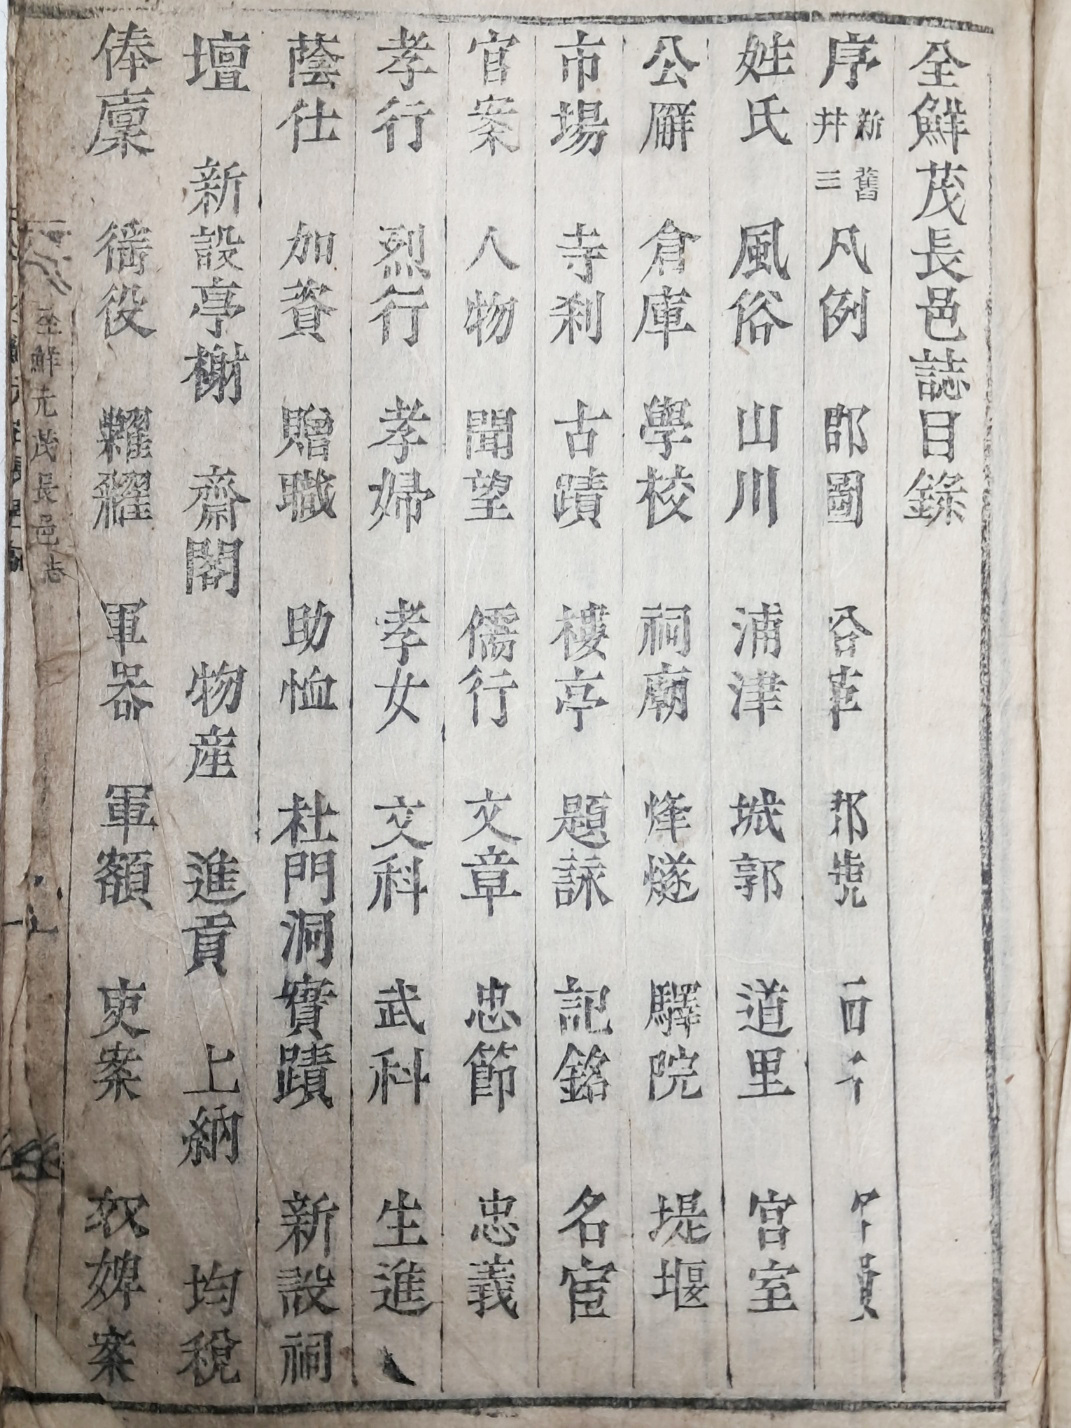 全鮮茂長邑誌目錄
序 新舊幷三 凡例 郡圖 沿革 郡號 官員
姓氏 風俗 山川 浦津 城郭 道里 宮室
公廨 倉庫 學校 祠廟 烽燧 驛院 堤堰
市場 寺刹 古蹟 樓亭 題詠 記銘 名宦
官案 人物 聞望 儒行 文章 忠節 忠義
孝行 烈行 孝婦 孝女 文科 武科 生進
蔭仕 加資 贈職 助恤 杜門洞實蹟 新設祠
壇 新設亭榭 齋閣 物産 進貢 上納 均稅
俸廩 衙役 糶糴 軍器 軍額 吏案 奴婢案
全鮮 茂長邑誌